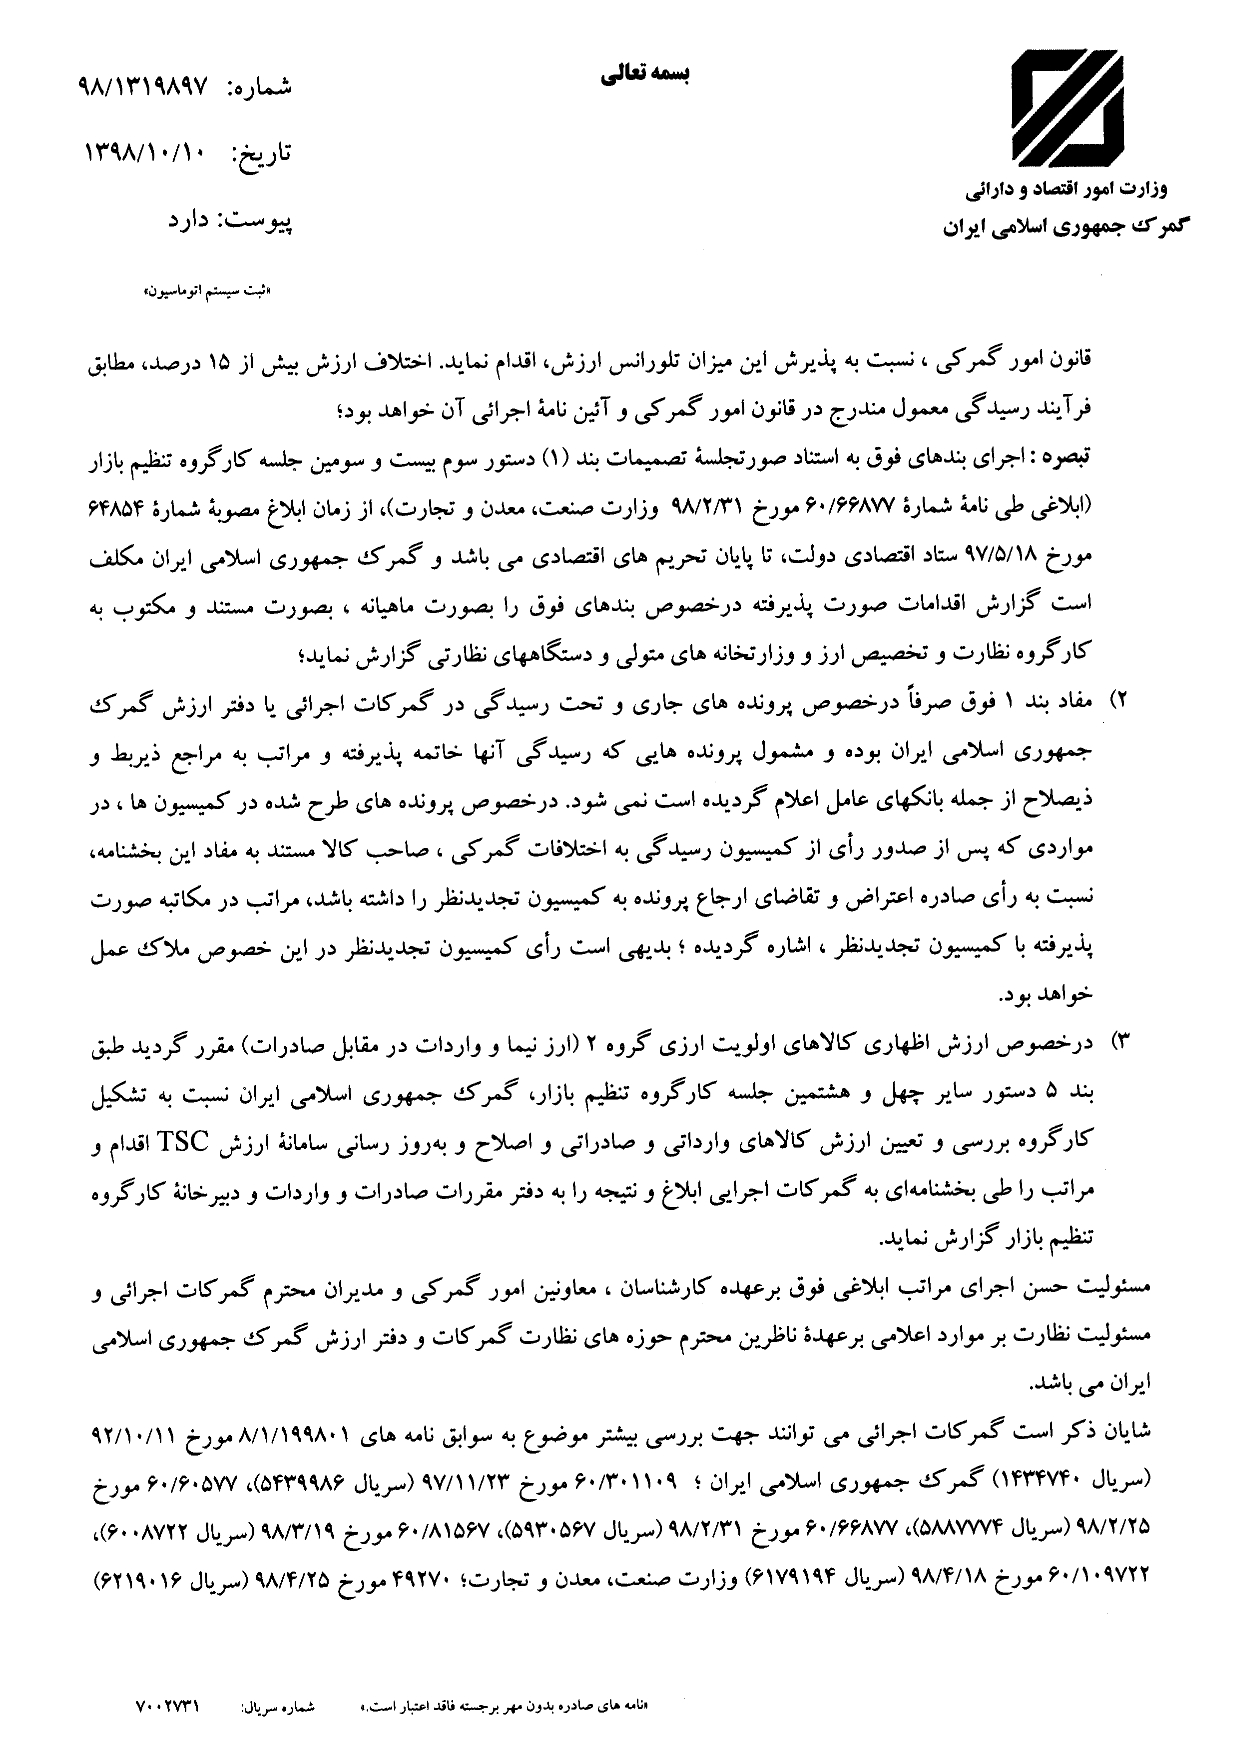 بسمه تعالی
شماره: ۹۸/۱۳۱۹۸۹۷
تاریخ: ۱۳۹۸/۱۰/۱۰
پیوست: دارد
«ثبت سیستم اتوماسیون»
وزارت امور اقتصاد و دارائی
گمرک جمهوری اسلامی ایران
قانون امور گمرکی ، نسبت به پذیرش این میزان تلورانس ارزش، اقدام نماید. اختلاف ارزش بیش از ۱۵ درصد، مطابق
فرآیند رسیدگی معمول مندرج در قانون امور گمرکی و آئین نامۀ اجرائی آن خواهد بود؛
تبصره : اجرای بندهای فوق به استناد صورتجلسۀ تصمیمات بند (۱) دستور سوم بیست و سومین جلسه کارگروه تنظیم بازار
(ابلاغی طی نامۀ شمارۀ ۶۰/۶۶۸۷۷ مورخ ۹۸/۲/۳۱ وزارت صنعت، معدن و تجارت)، از زمان ابلاغ مصوبۀ شمارۀ ۶۴۸۵۴
مورخ ۹۷/۵/۱۸ ستاد اقتصادی دولت، تا پایان تحریم های اقتصادی می باشد و گمرک جمهوری اسلامی ایران مکلف
است گزارش اقدامات صورت پذیرفته درخصوص بندهای فوق را بصورت ماهیانه ، بصورت مستند و مکتوب به
کارگروه نظارت و تخصیص ارز و وزارتخانه های متولی و دستگاههای نظارتی گزارش نماید؛
۲) مفاد بند ۱ فوق صرفاً درخصوص پرونده های جاری و تحت رسیدگی در گمرکات اجرائی یا دفتر ارزش گمرک
جمهوری اسلامی ایران بوده و مشمول پرونده هایی که رسیدگی آنها خاتمه پذیرفته و مراتب به مراجع ذیربط و
ذیصلاح از جمله بانکهای عامل اعلام گردیده است نمی شود. درخصوص پرونده های طرح شده در کمیسیون ها ، در
مواردی که پس از صدور رأی از کمیسیون رسیدگی به اختلافات گمرکی ، صاحب کالا مستند به مفاد این بخشنامه،
نسبت به رأی صادره اعتراض و تقاضای ارجاع پرونده به کمیسیون تجدیدنظر را داشته باشد، مراتب در مکاتبه صورت
پذیرفته با کمیسیون تجدیدنظر ، اشاره گردیده ؛ بدیهی است رأی کمیسیون تجدیدنظر در این خصوص ملاک عمل
خواهد بود.
۳) درخصوص ارزش اظهاری کالاهای اولویت ارزی گروه ۲ (ارز نیما و واردات در مقابل صادرات) مقرر گردید طبق
بند ۵ دستور سایر چهل و هشتمین جلسه کارگروه تنظیم بازار، گمرک جمهوری اسلامی ایران نسبت به تشکیل
کارگروه بررسی و تعیین ارزش کالاهای وارداتی و صادراتی و اصلاح و به‌روز رسانی سامانۀ ارزش TSC اقدام و
مراتب را طی بخشنامه‌ای به گمرکات اجرایی ابلاغ و نتیجه را به دفتر مقررات صادرات و واردات و دبیرخانۀ کارگروه
تنظیم بازار گزارش نماید.
مسئولیت حسن اجرای مراتب ابلاغی فوق برعهده کارشناسان ، معاونین امور گمرکی و مدیران محترم گمرکات اجرائی و
مسئولیت نظارت بر موارد اعلامی برعهدۀ ناظرین محترم حوزه های نظارت گمرکات و دفتر ارزش گمرک جمهوری اسلامی
ایران می باشد.
شایان ذکر است گمرکات اجرائی می توانند جهت بررسی بیشتر موضوع به سوابق نامه های ۸/۱/۱۹۹۸۰۱ مورخ ۹۲/۱۰/۱۱
(سریال ۱۴۳۴۷۴۰) گمرک جمهوری اسلامی ایران ؛ ۶۰/۳۰۱۱۰۹ مورخ ۹۷/۱۱/۲۳ (سریال ۵۴۳۹۹۸۶)، ۶۰/۶۰۵۷۷ مورخ
۹۸/۲/۲۵ (سریال ۵۸۸۷۷۷۴)، ۶۰/۶۶۸۷۷ مورخ ۹۸/۲/۳۱ (سریال ۵۹۳۰۵۶۷)، ۶۰/۸۱۵۶۷ مورخ ۹۸/۳/۱۹ (سریال ۶۰۰۸۷۲۲)،
۶۰/۱۰۹۷۲۲ مورخ ۹۸/۴/۱۸ (سریال ۶۱۷۹۱۹۴) وزارت صنعت، معدن و تجارت؛ ۴۹۲۷۰ مورخ ۹۸/۴/۲۵ (سریال ۶۲۱۹۰۱۶)
«نامه های صادره بدون مهر برجسته فاقد اعتبار است.» شماره سریال: ۷۰۰۲۷۳۱